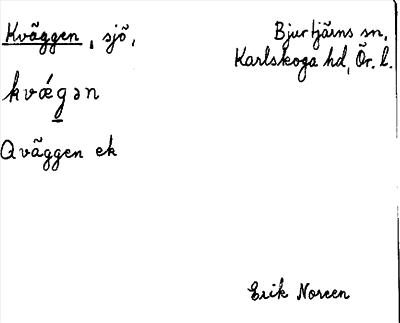 Kväggen, sjö,
Bjurtjärns sn,
Karlskoga hd, Ör. l.
kvǽgən
Qväggen ek
Erik Noreen